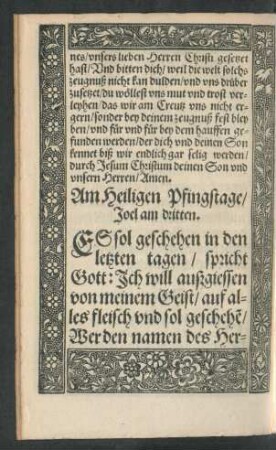 nes/vnsers lieben Herren Christi gesetzet
hast/Vnd bitten dich/weil die welt solchs
zeugnuß nicht kan dulden/vnd vns drüber
zusetzet/du wöllest vns mut vnd trost ver-
leyhen/das wir am Creutz vns nicht er-
gern/sonder bey deinem zeugnuß fest bley
ben/vnd für vnd für bey dem hauffen ge-
funden werden/der dich vnd deinen Son
kennet biß wir endlich gar selig werden/
durch Jesum Christum deinen Son vnd
vnsern Herren/Amen.
Am Heiligen Pfingstage/
Joel am dritten.
ES sol geschehen in den
letzten tagen/spricht
Gott: Ich will außgiessen
von meinem Geist/auf al-
les fleisch vnd sol geschehẽ/
Wer den namen des Her-